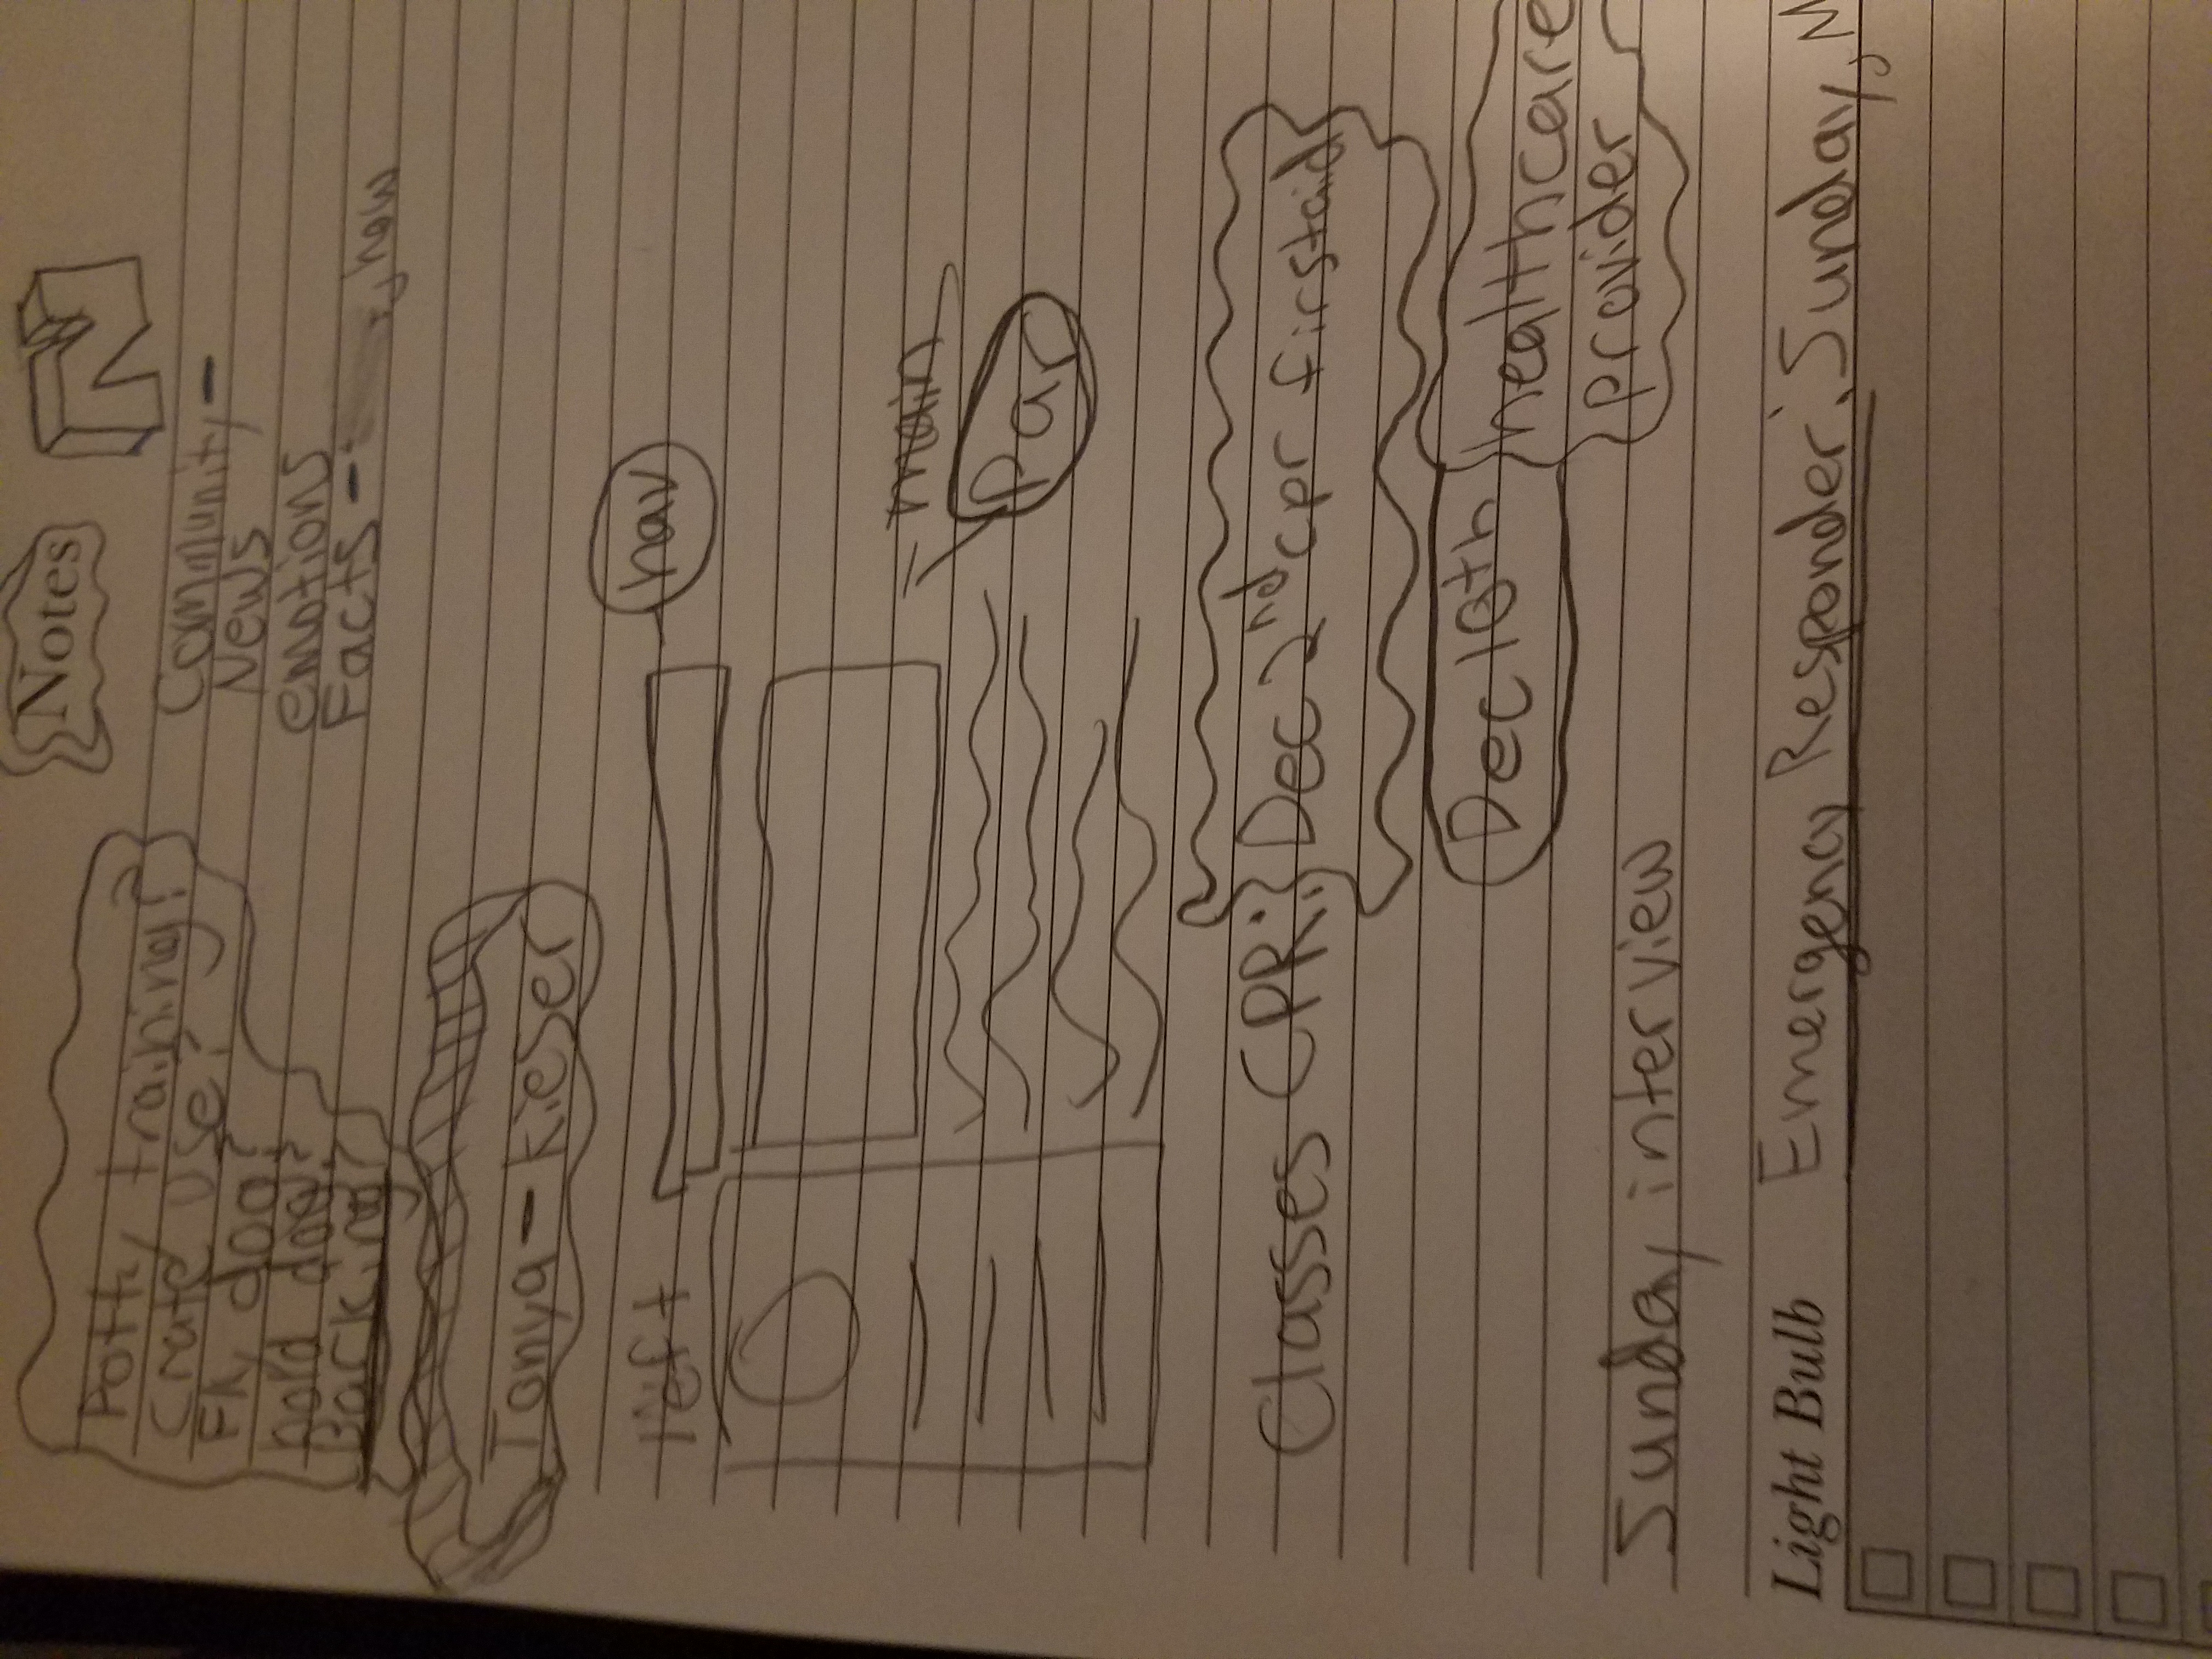 Notes
N
Potty training?
Crate use?
Fly dog?
hold dog?
Backing?
Community-
News
emotions
Facts - how
Tonya - Kieser
left
nav
main
Par
Classes CPR: Dec 2nd cpr firstaid
Dec 10th healthcare
provider
Sunday interview
Light Bulb Emergency Responder: Sunday, M